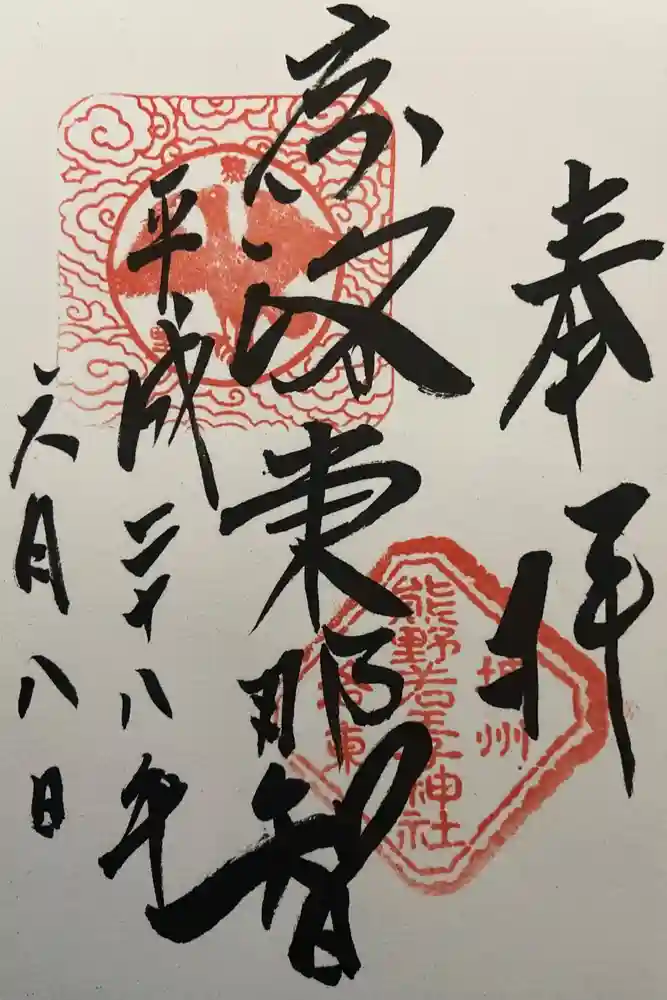 奉拝
京洛東那智
平成二十八年
六月八日
熊野若王子神社